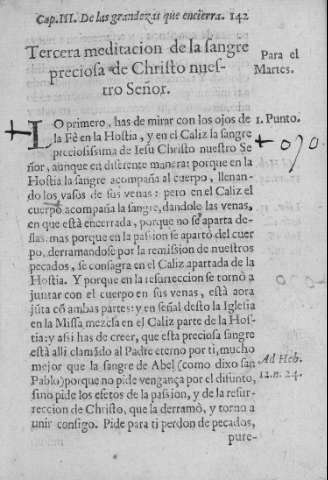 Cap. III. De las grandezas que encierra. 142
Tercera meditacion de la sangre
preciosa de Christo nues-
tro Señor.
Para el
Martes.
LO primero, has de mirar con los ojos de
la Fè en la Hostia, y en el Caliz la sangre
preciosissima de Iesu Christo nuestro Se
ñor, aunque en diferente manera: porque en la
Hostia la sangre acompaña al cuerpo, llenan-
do los vasos de sus venas: pero en el Caliz el
cuerpo acompaña la sangre, dandole las venas,
en que està encerrada, porque no se aparta de-
llas. mas porque en la passion se apartò del cuer
po, derramandose por la remission de nuestros
pecados, se consagra en el Caliz apartada de la
Hostia. Y porque en la resurreccion se tornò a
juntar con el cuerpo en sus venas, està aora
jũta cõ ambas partes: y en señal desto la Iglesia
en la Missa mezcla en el Caliz parte de la Hos-
tia: y assi has de creer, que esta preciosa sangre
està alli clamãdo al Padre eterno por ti, mucho
mejor que la sangre de Abel (como dixo san
Pablo) porque no pide vengança por el difunto,
sino pide los efetos de la passion, y de la resur-
reccion de Christo, que la derramò, y torno a
unir consigo. Pide para ti perdon de pecados,
pure-
1. Punto.
Ad Heb.
12. n. 24.